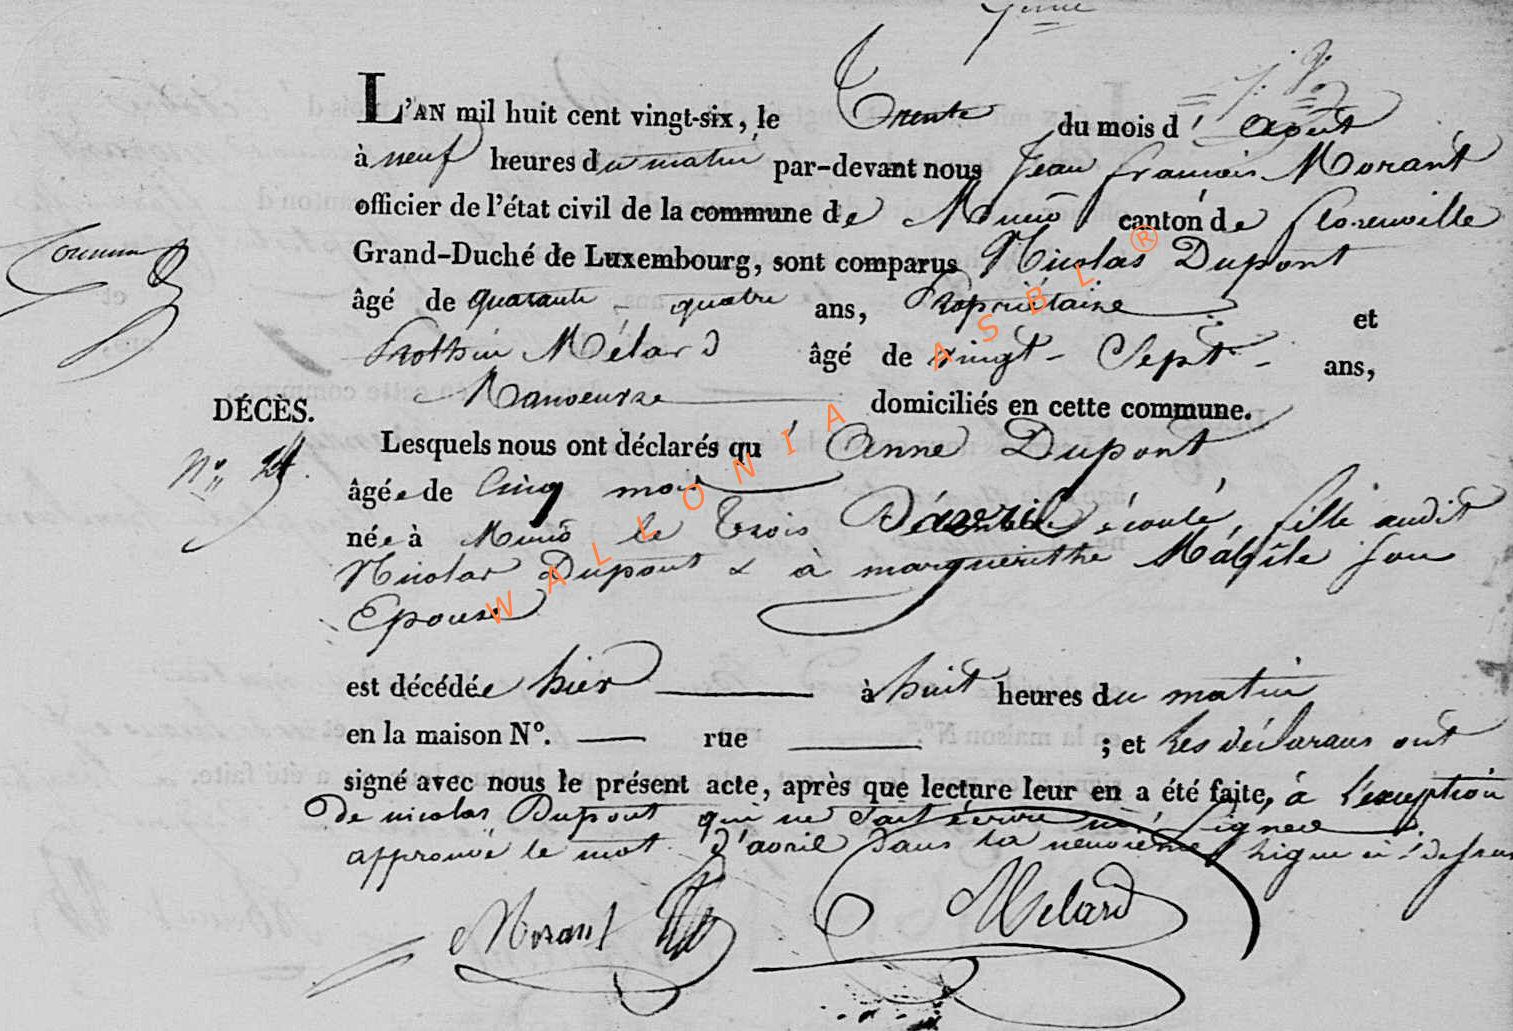 7eme
L'AN mil huit cent vingt-six, le Trente du mois d' août
à neuf heures du matin par-devant nous Jean francois Morant
officier de l'état civil de la commune de Muno canton de florenville
Grand-Duché de Luxembourg, sont comparus Nicolas Dupont
âgé de quarante - quatre ans, Propriétaire et
Pothin Mélard âgé de vingt - Sept - ans,
Manoeuvre domiciliés en cette commune.
DÉCÈS.
Lesquels nous ont déclarés qu' Anne Dupont
No. 24.
âgée de Cinq mois
née à Muno le trois D'avril écoulé, fille audit
Nicolas Dupont & à marguerithe son
Epouse
est décédée hier à huit heures du matin
en la maison N°. rue ; et Les déclarans ont
signé avec nous le présent acte, après que lecture leur en a été faite, à l'exception
De nicolas Dupont qui ne Sait écrire ni Signer
approuvé le mot D'avril Dans la neuvieme ligne ci-dessus
Morant Melard
WALLONIA ASBL ®